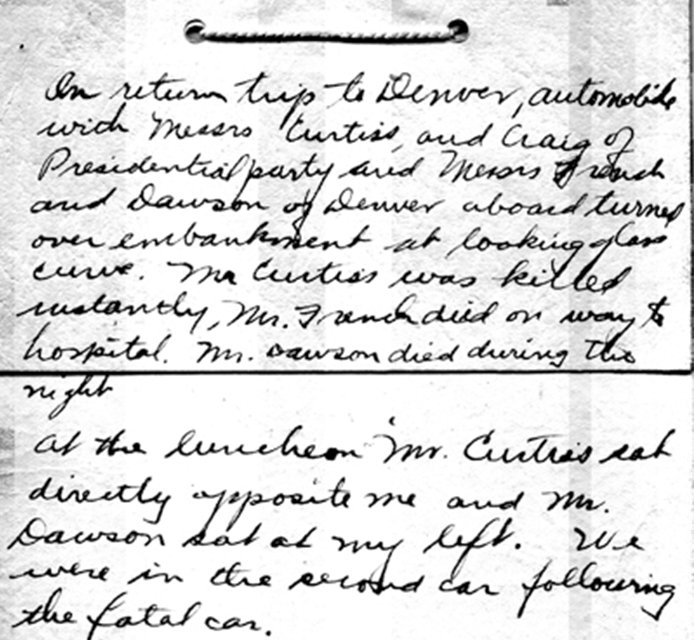 On return trip to Denver, automobile
with Messrs Curtiss, and Craig of
Presidential party and Messrs French
and Dawson of Denver aboard turned
over embankment at looking glass
curve. Mr Curtiss was killed
instantly, Mr. French died on way to
hospital. Mr. Dawson died during the
night
At the luncheon Mr. Curtiss sat
directly opposite me and Mr.
Dawson sat at my left. We
were in the second car following
the fatal car.